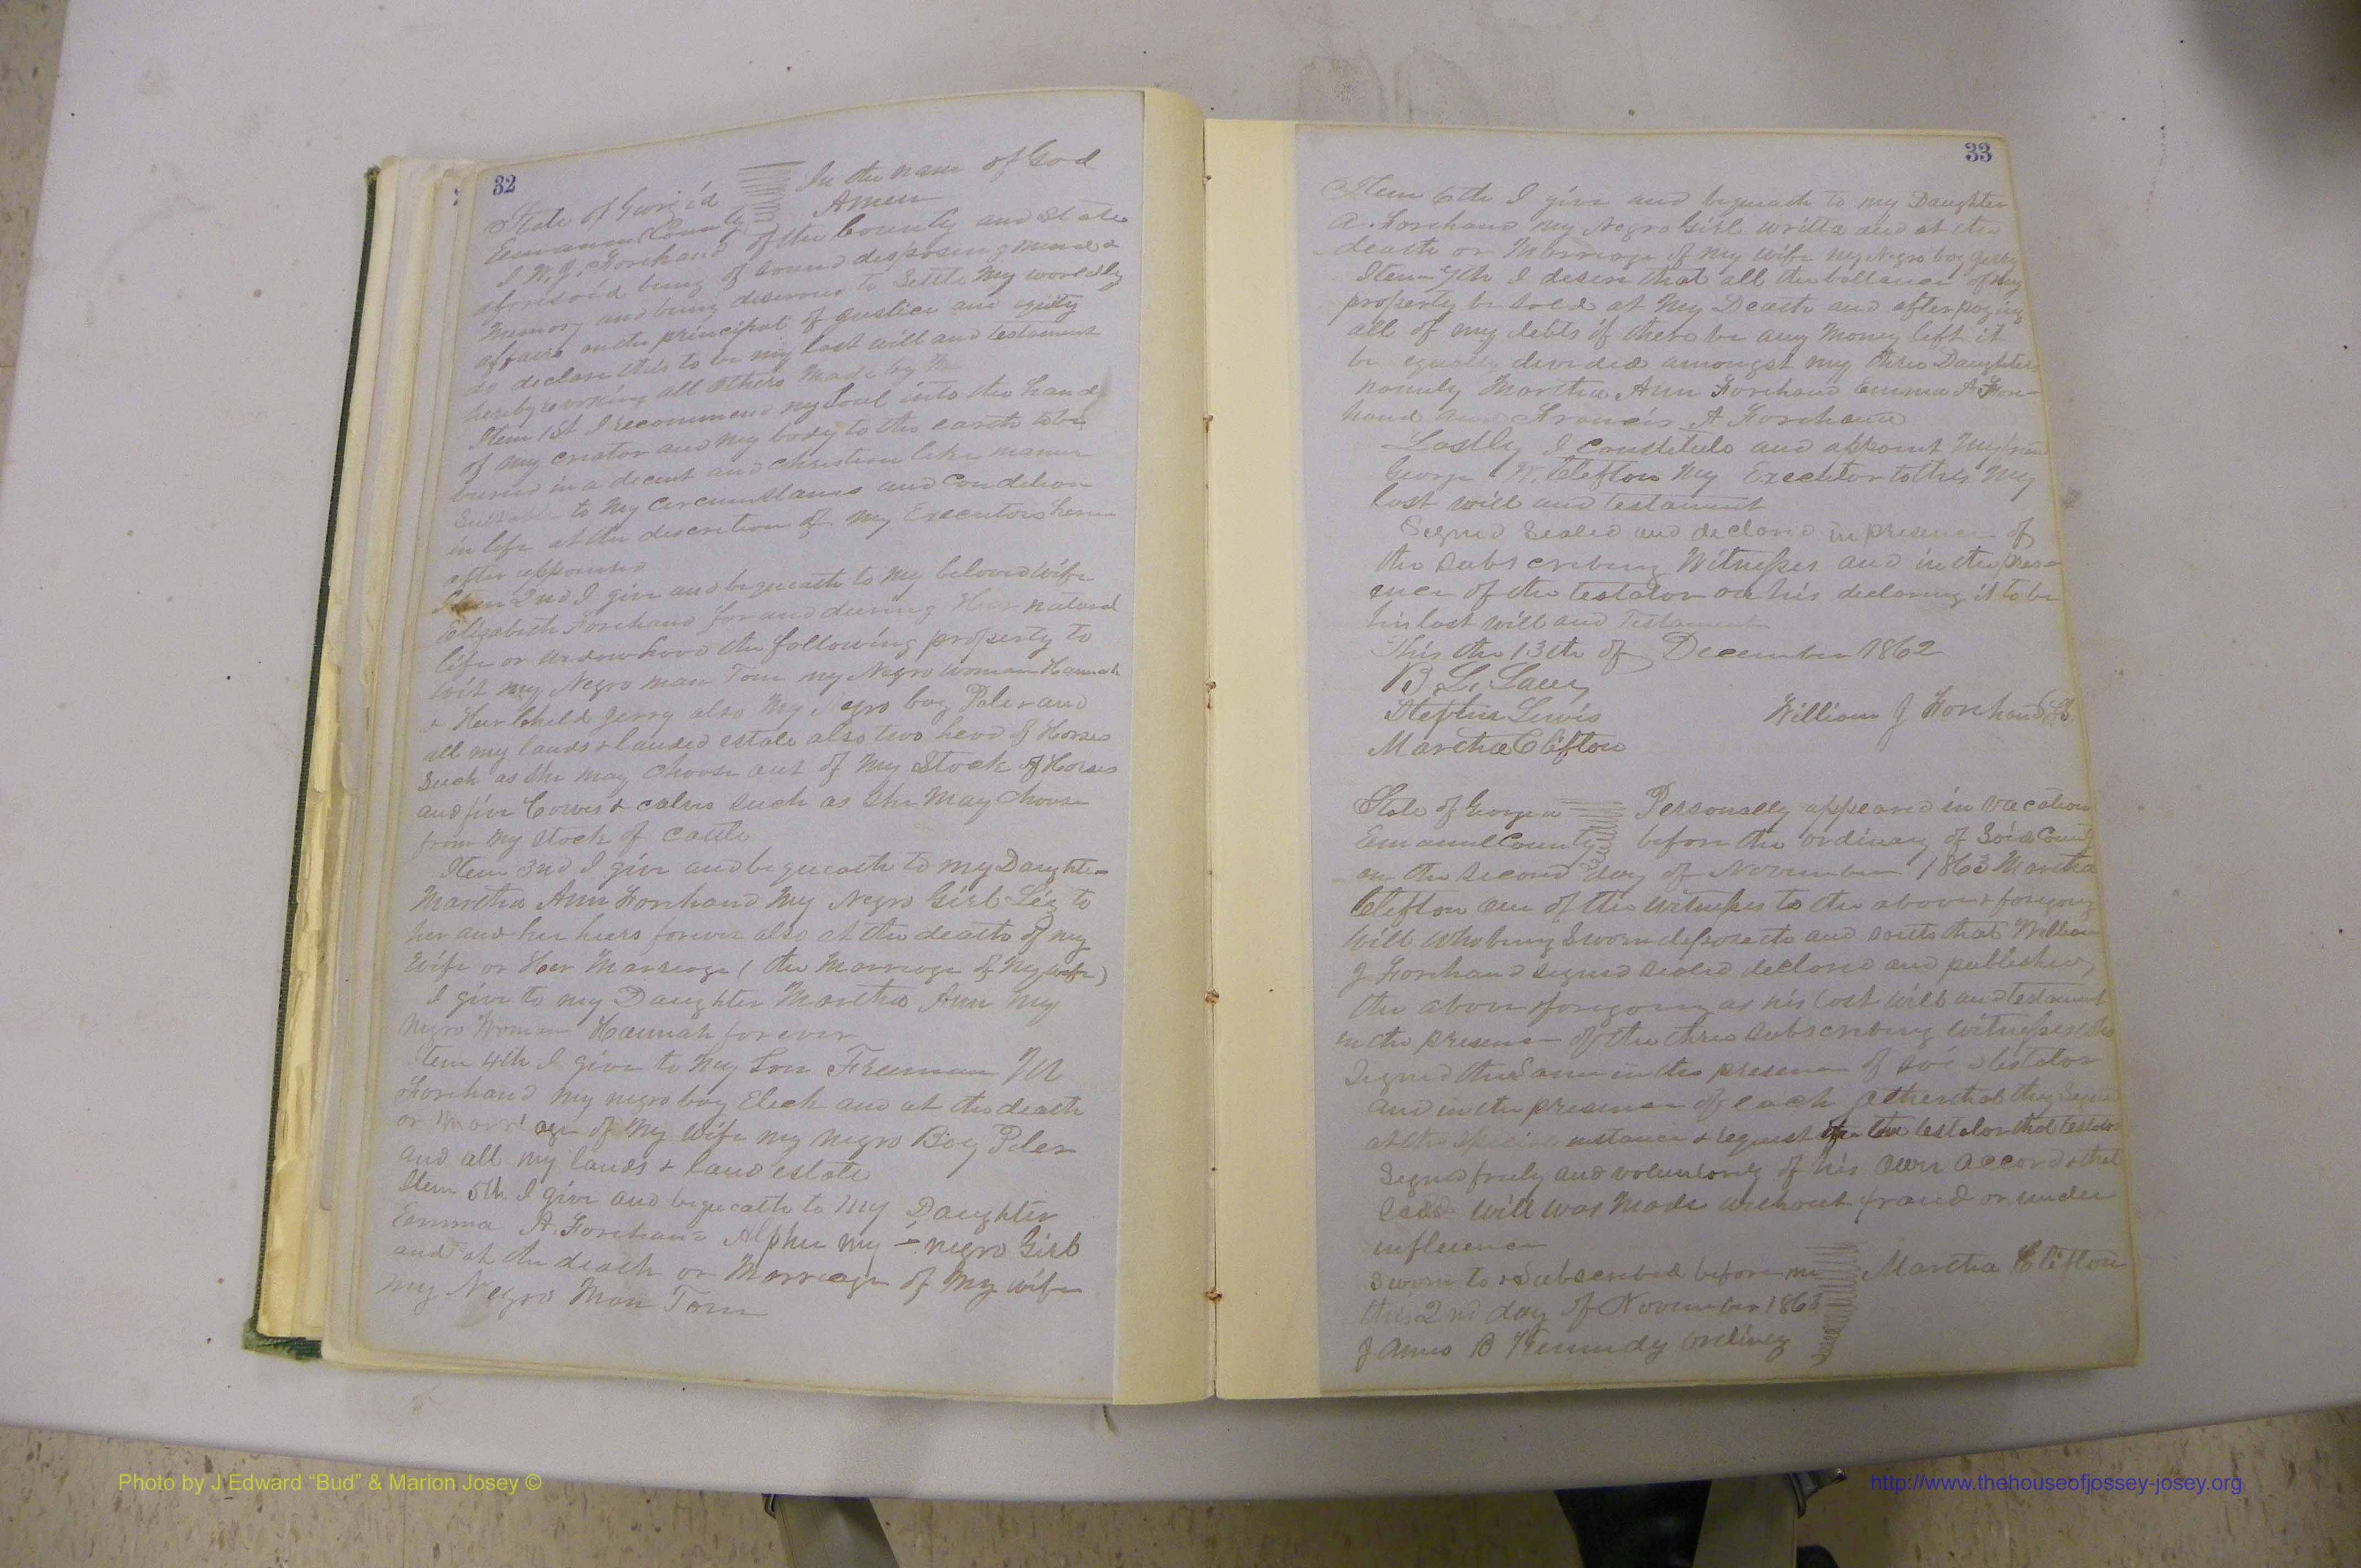 32
State of Georgia In the name of God
Emanuel County Amen
I W. J. Forehand of the County and State
aforesaid being of sound disposing mind &
memory and being desirous to Settle my worldly
affairs on the principal of justice and equity
do declare this to be my last will and testament
hereby revoking all others made by me
Item 1st I recommend my Soul into the hands
of my creator and my body to the earth to be
buried in a decent and christian like manner
Suitable to my Circumstances and Condition
in life at the discretion of my Executors herein
after appointed
Item 2nd I give and bequeath to my beloved Wife
Elizabeth Forehand for and during Hear natural
life or widowhood the following property to
wit my Negro man Tom my Negro woman Hannah
& Hear Child Jerry also my Negro boy Peter and
all my lands & landed estate also two head of Horses
Such as she may choose out of my Stock of Horses
and five Cows & calves Such as She May choose
from my stock of cattle
Item 3nd I give and bequeath to my Daughter
Martha Ann Forehand my Negro Girl Liz to
her and her heirs forever also at the death of my
Wife or Hear Marriage ( the Marriage of My wife )
I give to my Daughter Martha Ann my
Negro Woman Hannah forever
Item 4th I give to my Son Freeman M
Forehand my negro boy Elech and at the death
or Marriage of my Wife my negro Boy Peter
and all my lands & land estate
Item 5th I give and bequeath to my Daughter
Emma A. Forehand Alpher my negro Girl
and at the death or Marriage of my wife
my Negro Man Tom
33
Item 6th I give and bequeath to my Daughter
A. Forehand my Negro Girl Writta and at the
death or Marriage of my wife my Negro boy Jerry
Item 7th I desire that all the ballance of my
property be sold at my Death and after paying
all of my debts if there be any Money left it
be equally divided amongst my three Daughters
namely Martha Ann Forehand Emma A. Fore-
hand and Francis A Forehand
Lastly I Constitute and appoint my friend
George W. Clefton my Executor to this my
last will and testament
Signed Sealed and declared in presence of
the Subscribing Witnesses and in the pres-
ence of the testator on his declaring it to be
his last will and Testament
This the 13th of December 1862
B. L. Lacey
Stephen Lewis William J Forehand LS
Martha Clifton
State of Georgia Personally appeared in vacation
Emanuel County before the ordinary of Said County
on the second day of November 1863 Martha
Clefton one of the witnesses to the above & foregoing
Will who being Sworn deposeth and saith that William
J Forehand signed sealed declared and published
the above & foregoing as his last will and testament
in the presence of the three subscribing witnesses
Signed the Same in the presence of said testator
and in the presence of each other that they Signed
at the special instance & request of the testator that testator
Signed freely and voluntarily of his own accord & that
Said will was made without fraud or undue
influence
Sworn to & Subscribed before me Martha Clifton
this 2nd day of November 1863
James B Kennedy ordinary
Photo by J Edward “Bud” & Marion Josey ©
http://www.thehouseofjossey-josey.org